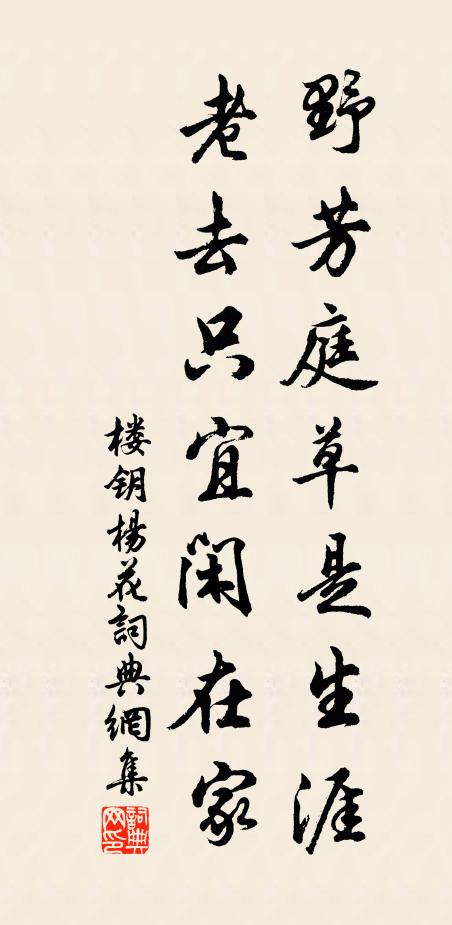 野芳庭草是生涯
老去只宜閑在家
楼钥楊花詞典網集
詞典网印